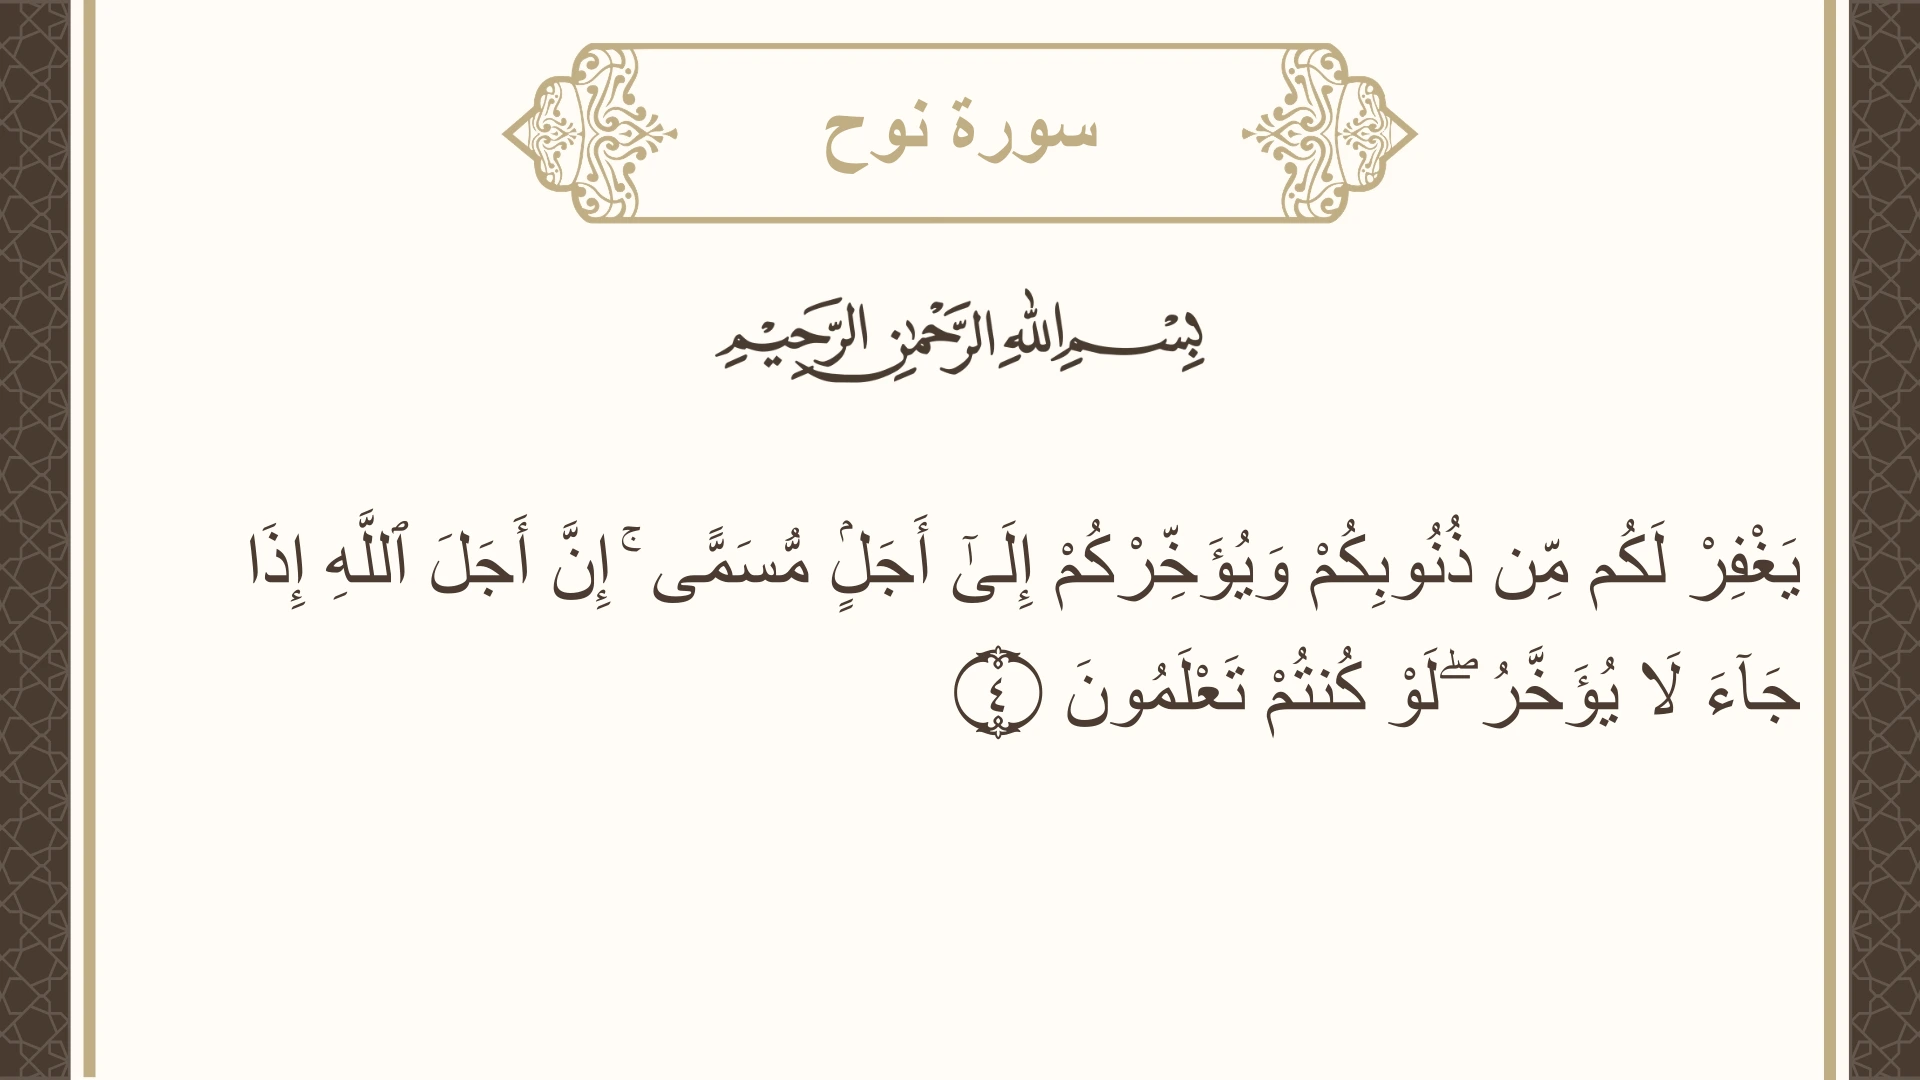 سورة نوح
بِسْمِ اللهِ الرَّحْمٰنِ الرَّحِيْمِ
يَغْفِرْ لَكُم مِّن ذُنُوبِكُمْ وَيُؤَخِّرْكُمْ إِلَىٰٓ أَجَلٍۢ مُّسَمًّى ۚ إِنَّ أَجَلَ ٱللَّهِ إِذَا
جَآءَ لَا يُؤَخَّرُ ۖ لَوْ كُنتُمْ تَعْلَمُونَ ٤